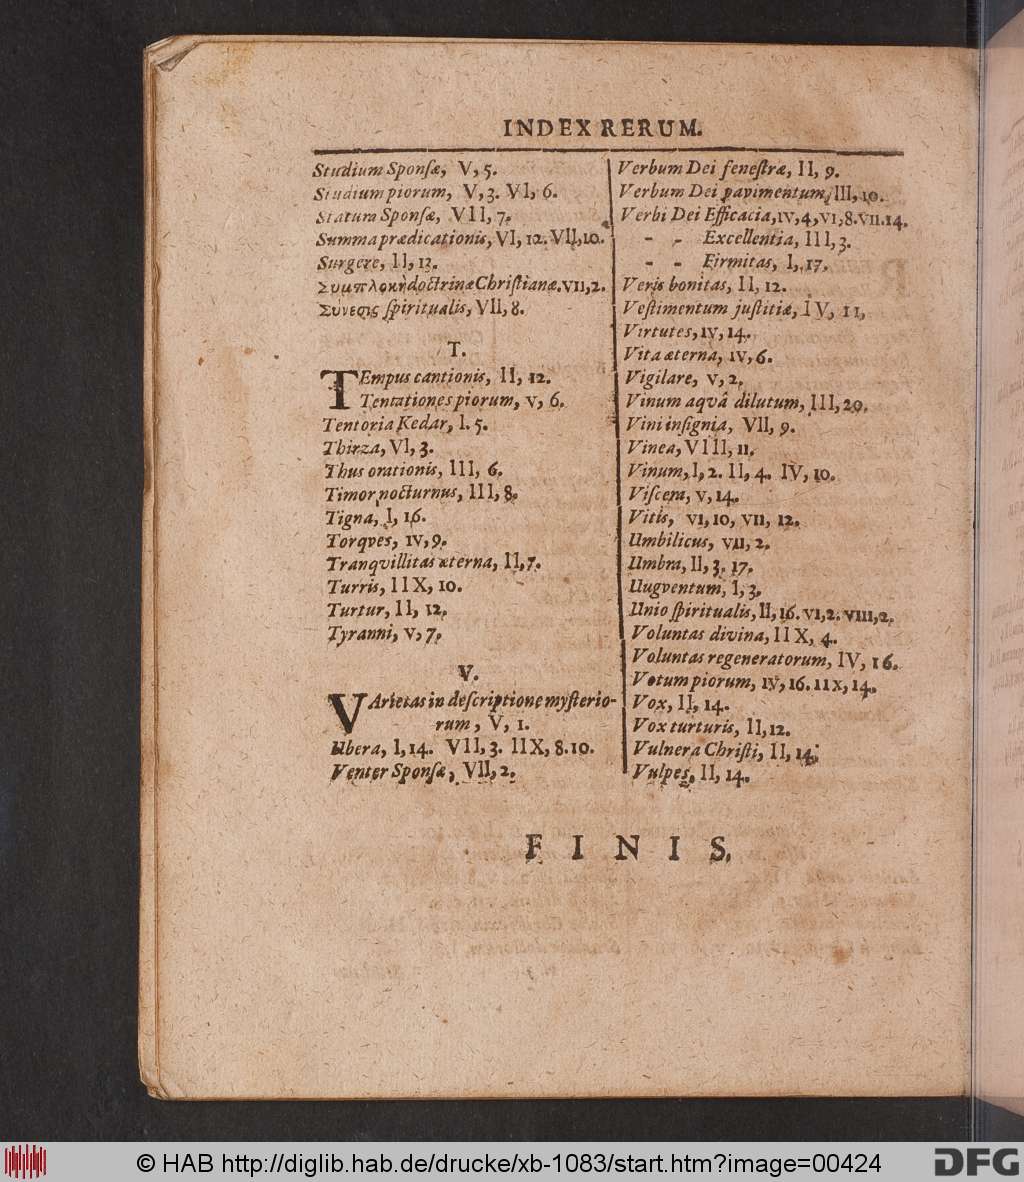 INDEX RERUM.
Studium Sponsæ, V, 5.
Studium piorum, V, 3. VI, 6.
Statura Sponsæ, VII, 7.
Summa prædicationis, VI, 12. VII, 10.
Surgere, II, 13.
Συμπλοκὴ doctrinæ Christianæ. VII, 2.
Συνεσις spiritualis, VII, 8.
T.
TEmpus cantionis, II, 12.
Tentationes piorum, V, 6.
Tentoria Kedar, I. 5.
Thirza, VI, 3.
Thus orationis, III, 6.
Timor nocturnus, III, 8.
Tigna, I, 16.
Torqves, IV, 9.
Tranqvillitas æterna, II, 7.
Turris, IIX, 10.
Turtur, II, 12.
Tyranni, V, 7.
V.
VArietas in descriptione mysterio-
rum, V, 1.
Ubera, I, 14. VII, 3. IIX, 8. 10.
Venter Sponsæ, VII, 2.
Verbum Dei fenestræ, II, 9.
Verbum Dei pavimentum, III, 10.
Verbi Dei Efficacia, IV, 4, VI, 8. VII. 14.
- - Excellentia, III, 3.
- - Firmitas, I, 17.
Veris bonitas, II, 12.
Vestimentum justitiæ, IV, 11,
Virtutes, IV, 14.
Vita æterna, IV, 6.
Vigilare, V, 2.
Vinum aqvâ dilutum, III, 20.
Vini insignia, VII, 9.
Vinea, VIII, 11.
Vinum, I, 2. II, 4. IV, 10.
Viscera, V, 14.
Vitis, VI, 10, VII, 12.
Umbilicus, VII, 2.
Umbra, II, 3. 17.
Uugventum, I, 3.
Unio spiritualis, II, 16. VI, 2. VIII, 2.
Voluntas divina, IIX, 4.
Voluntas regeneratorum, IV, 16.
Votum piorum, IV, 16. IIX, 14.
Vox, II, 14.
Vox turturis, II, 12.
Vulnera Christi, II, 14.
Vulpes, II, 14.
FINIS.
© HAB http://diglib.hab.de/drucke/xb-1083/start.htm?image=00424
DFG